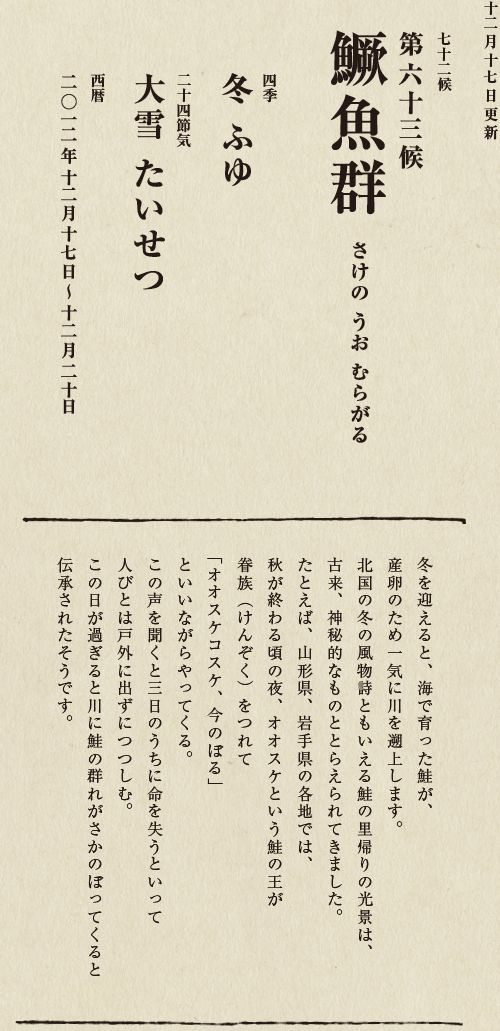 十二月十七日更新
七十二候
第六十三候
鱖魚群 さけの うお むらがる
四季
冬 ふゆ
二十四節気
大雪 たいせつ
西暦
二〇一二年十二月十七日～十二月二十日
冬を迎えると、海で育った鮭が、
産卵のため一気に川を遡上します。
北国の冬の風物詩ともいえる鮭の里帰りの光景は、
古来、神秘的なものととらえられてきました。
たとえば、山形県、岩手県の各地では、
秋が終わる頃の夜、オオスケという鮭の王が
眷族（けんぞく）をつれて
「オオスケコスケ、今のぼる」
といいながらやってくる。
この声を聞くと三日のうちに命を失うといって
人びとは戸外に出ずにつつしむ。
この日が過ぎると川に鮭の群れがさかのぼってくると
伝承されたそうです。